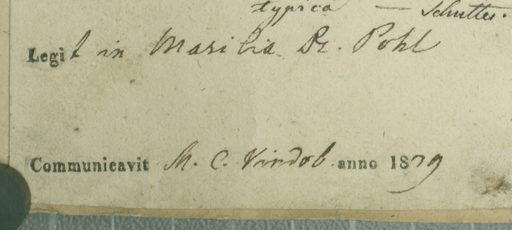 typica — Schultes.
Legit in Marilia Dr. Pohl
Communicavit M. C. Vindob. anno 1839